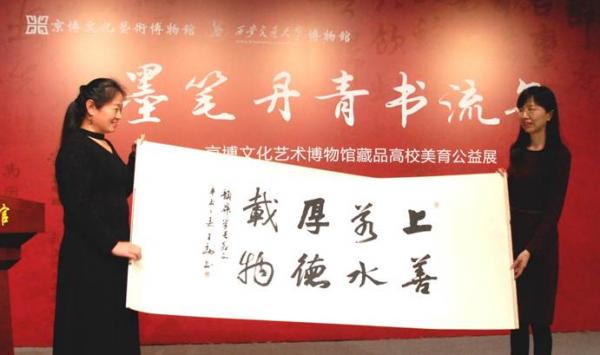 京博文化藝術博物館 西安交通大学博物館
墨笔丹青书流
京博文化艺术博物馆藏品高校美育公益展
上善
若水
厚德
載物